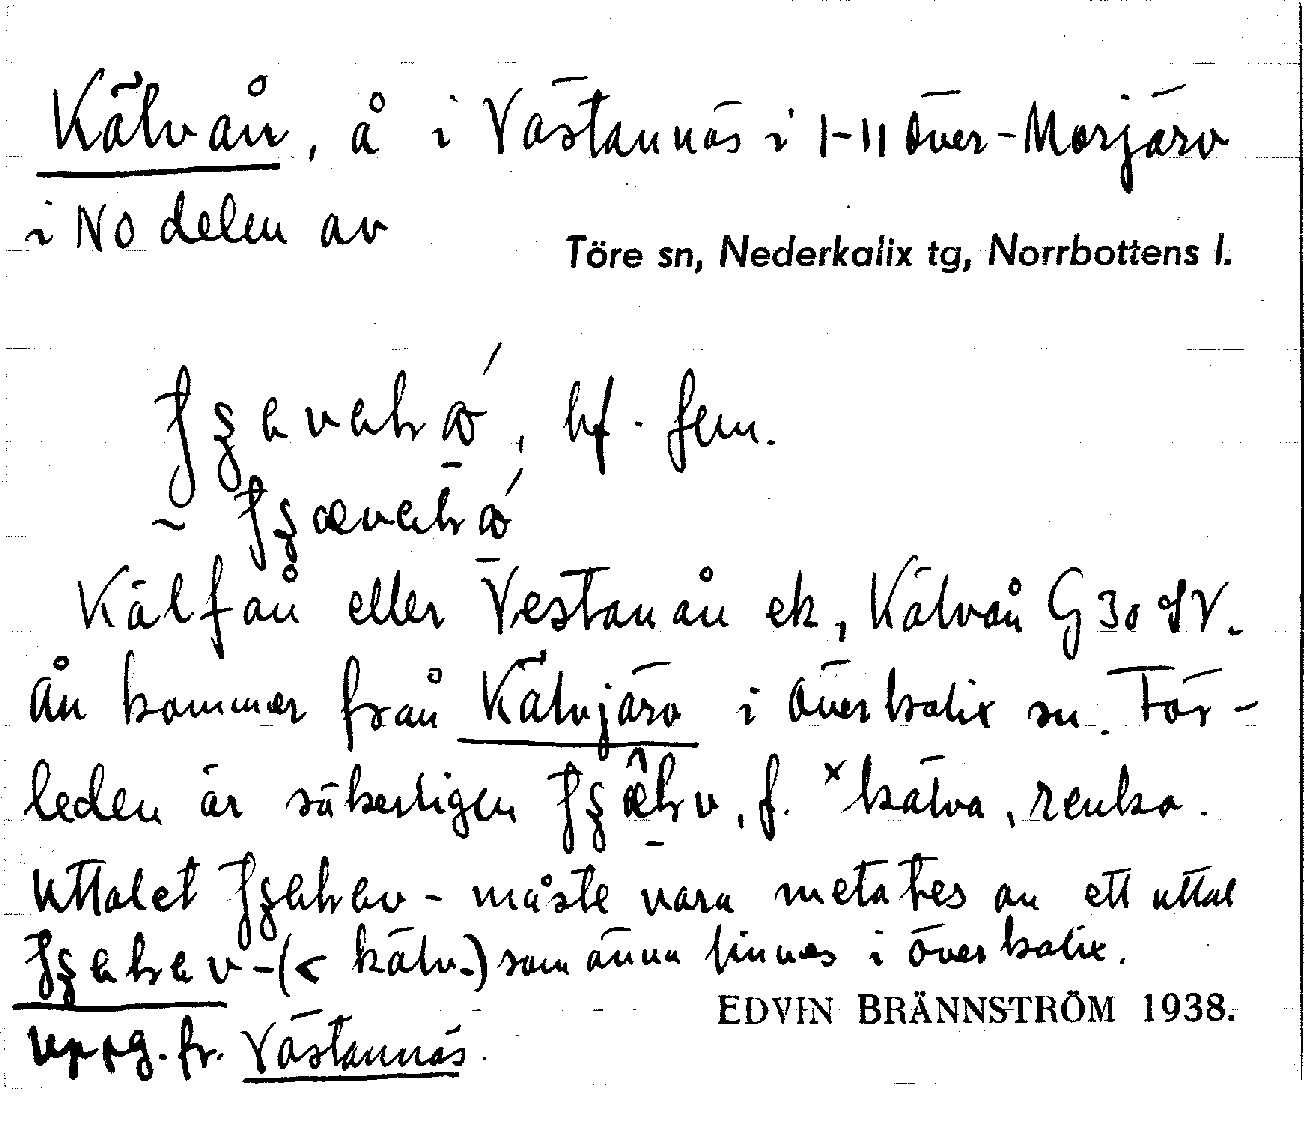 Kälvån, å i Västannäs i 1-11 Över-Morjärv
i NO delen av
Töre sn, Nederkalix tg, Norrbottens l.
bf. fem.
~
Kälfån eller Vestanån ek, Kälvån G 30 SV.
Ån kommer från Kälvjärv i Överkalix sn. För-
leden är säkerligen , f. *kälva, renko.
Uttalet - måste vara metates av ett uttal
-(< kälv-) som ännu finnes i Överkalix.
EDVIN BRÄNNSTRÖM 1938.
Uppg. fr. Västannäs.